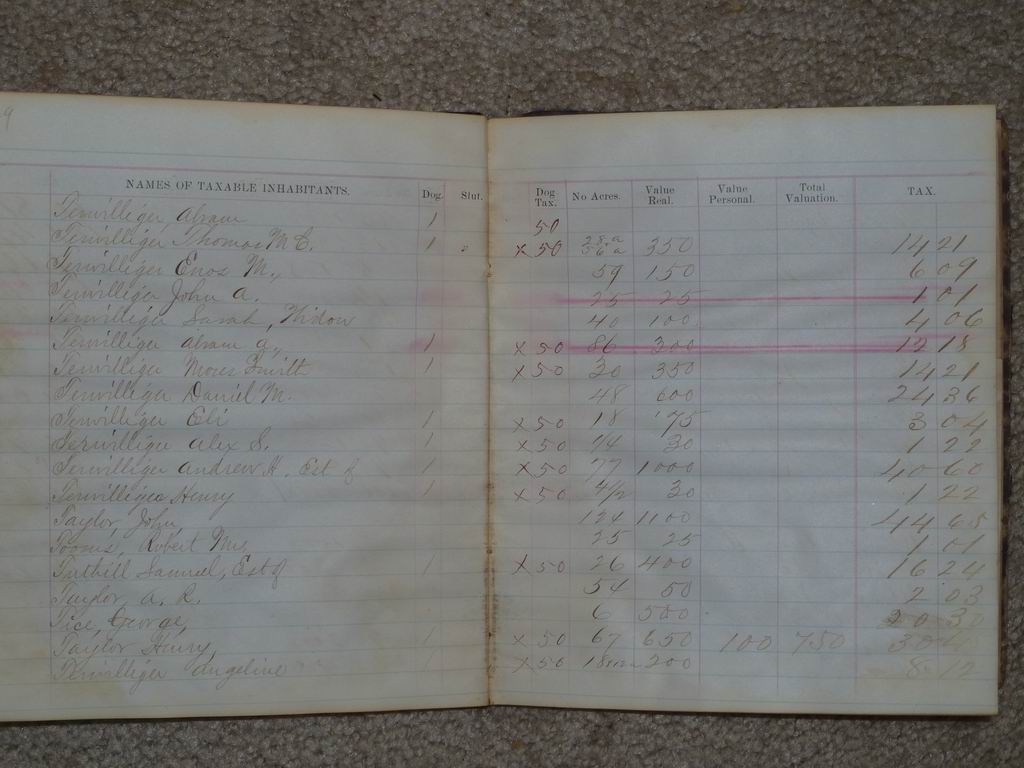 9
NAMES OF TAXABLE INHABITANTS. Dog. Slut. Dog Tax. No Acres. Value Real. Value Personal. Value Total Valuation. TAX.
Terwilliger Abram 1 50
Terwilliger Thomas M C. 1 x 50 28.a 56a 350 14 21
Terwilliger Enos M, 59 150 6 09
Terwilliger John A. 25 25 1 01
Terwilliger Sarah, Widow 40 100 4 06
Terwilliger Abram 1 x 50 86 300 12 18
Terwilliger Moses 1 x 50 30 350 14 21
Terwilliger Daniel M. 48 600 24 36
Terwilliger Eli 1 x 50 18 75 3 04
Terwilliger Alex S. 1 x 50 30 1 22
Terwilliger Andrew H. Est of 1 x 50 77 1000 40 60
Terwilliger Henry 1 x 50 30 1 22
Taylor, John, 124 1100 44 65
Robert Mrs, 25 25 1 01
Tuthill Samuel, Est of 1 x 50 26 400 16 24
Taylor, A. R. 54 50 2 03
Tice, George, 6 500 20 30
Taylor Henry, 1 x 50 67 650 100 750 30
Terwilliger Angeline x 50 200 8 12